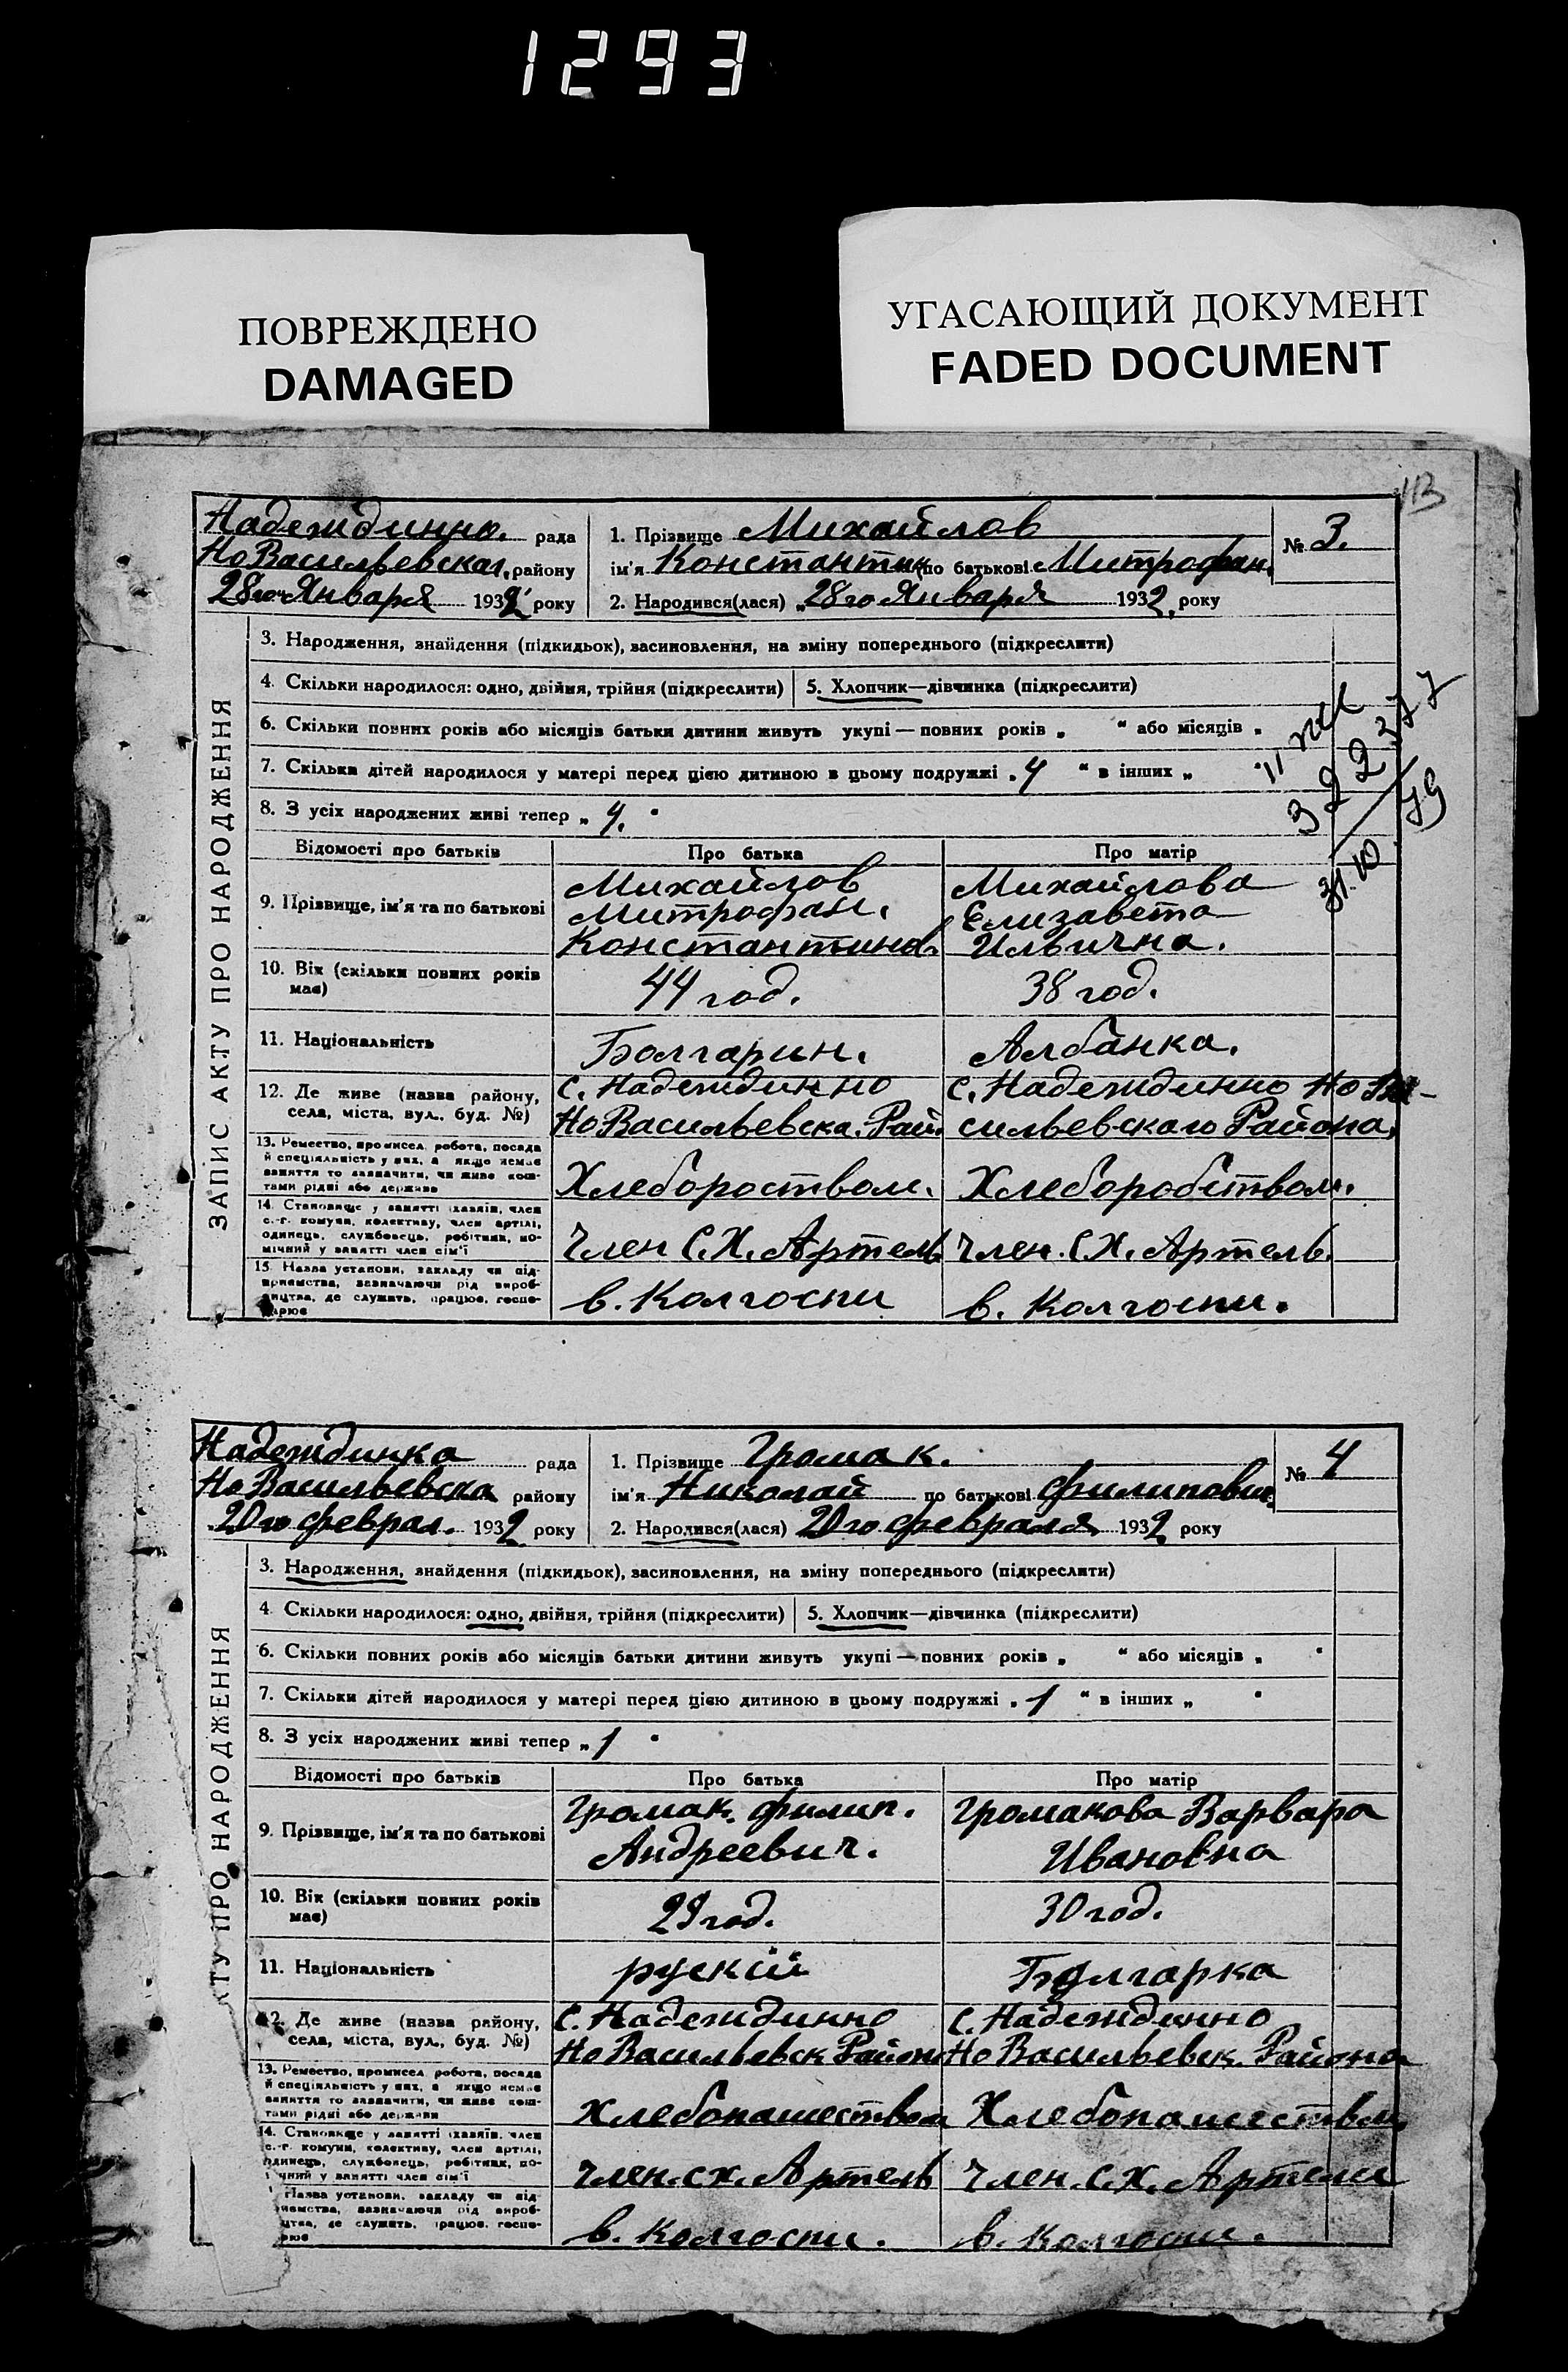 1293
ПОВРЕЖДЕНО
DAMAGED
УГАСАЮЩИЙ ДОКУМЕНТ
FADED DOCUMENT
113
Надеждинно. рада
НоВасильевская, району
28го Января 1932 року
1. Прізвище Михайлов
ім'я Константин по батькові Митрофан.
2. Народився(лася) „28го Января 1932, року
№ 3.
ЗАПИС АКТУ ПРО НАРОДЖЕННЯ
3. Народження, знайдення (підкидьок), засиновлення, на зміну попереднього (підкреслити)
4. Скільки народилося: одно, двійня, трійня (підкреслити) 5. Хлопчик—дівчинка (підкреслити)
6. Скільки повних років або місяців батьки дитини живуть укупі — повних років „ “ або місяців „
7. Скільки дітей народилося у матері перед цією дитиною в цьому подружжі „ 4 “ в інших „
8. З усіх народжених живі тепер „ 4. “
322377
31.10 79
Відомості про батьків Про батька Про матір
9. Прізвище, ім'я та по батькові
Михайлов
Митрофан.
Константинов.
Михайлова
Елизавета
Ильична.
10. Вік (скільки повних років має) 44 год. 38 год.
11. Національність Болгарин. Албанка.
12. Де живе (назва району, села, міста, вул., буд. №)
с. Надеждинно
НоВасильевска. Рай.
с. Надеждинно НоВа-
сильевскаго Района.
13. Ремество, промисел, робота, посада
й спеціяльність у них, а якщо немає
заняття то зазначити, чи живе кош-
тами рідні або держави
Хлебороством. Хлеборобством.
14. Становище у занятті (хазяїн, член
с.-г. комуни, колективу, член артілі,
одинець, службовець, робітник, по-
мічний у занятті член сім'ї
Член С.Х. Артель Член. С.Х. Артель.
15. Назва установи, закладу чи під-
приємства, зазначаючи рід вироб-
ництва, де служить, працює, госпо-
дарює
в. Колгоспи в. Колгоспи.
Надеждинка рада
НоВасильевска району
20го феврал. 1932 року
1. Прізвище Громак.
ім'я Николай по батькові Филипович
2. Народився(лася) 20го февраля 1932 року
№ 4
КТУ ПРО НАРОДЖЕННЯ
3. Народження, знайдення (підкидьок), засиновлення, на зміну попереднього (підкреслити)
4 Скільки народилося: одно, двійня, трійня (підкреслити) 5. Хлопчик—дівчинка (підкреслити)
6. Скільки повних років або місяців батьки дитини живуть укупі — повних років „ “ або місяців „ “
7. Скільки дітей народилося у матері перед цією дитиною в цьому подружжі „ 1 “ в інших „ “
8. З усіх народжених живі тепер „ 1 “
Відомості про батьків Про батька Про матір
9. Прізвище, ім'я та по батькові
Громак. филип.
Андреевич.
Громакова Варвара
Ивановна
10. Вік (скільки повних років має) 29 год. 30 год.
11. Національність рускій Болгарка
12. Де живе (назва району, села, міста, вул., буд. №)
с. Надеждинно
НоВасильевск Району
с. Надеждинно
НоВасильевск. Района
13. Ремество, промисел, робота, посада
й спеціяльність у них, а якщо немає
заняття то зазначити, чи живе кош-
тами рідні або держави
Хлебопашеством Хлебопашеством.
14. Становище у занятті (хазяїн, член
с.-г. комуни, колективу, член артілі,
динець, службовець, робітник, по-
чний у занятті член сім'ї
член.сх. Артель Член. С.Х. Артели
Назва установи, закладу чи під-
иємства, зазначаючи рід вироб-
цтва, де служить, працює, госпо-
рює
в. Колгоспи. в. Колгоспи.